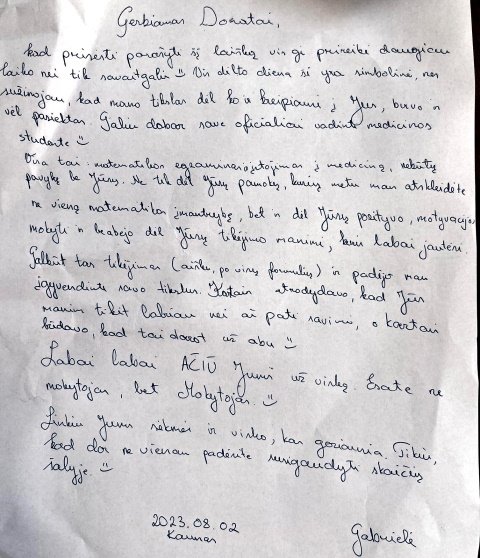 Gerbiamas Donatai,
kad prisėsti parašyti šį laišką vis gi prireikė daugiau
laiko nei tik savaitgalio :) Vis dėlto diena ši yra simbolinė, nes
sužinojau, kad mano tikslas dėl ko ir kreipiausi į Jus, buvo ir
vėl pasiektas. Galiu dabar save oficialiai vadinti medicinos
studente :)
Visa tai: matematikos egzaminas, įstojimas į mediciną, nebūtų
pavykę be Jūsų. Ne tik dėl Jūsų pamokų, kurių metu man atskleidėte
ne vieną matematikos įmantrybę, bet ir dėl Jūsų pozityvo, motyvacijos
mokyti ir be abejo dėl Jūsų tikėjimo manimi, kurį labai jaučiau.
Galbūt tas tikėjimas (aišku, po visų formulių) ir padėjo man
įgyvendinti savo tikslus. Kartais atrodydavo, kad Jūs
manim tikit labiau nei aš pati savimi, o kartais
būdavo, kad tai darot už abu :)
Labai labai AČIŪ Jums už viską. Esate ne
mokytojas, bet Mokytojas. :)
Linkiu Jums sėkmės ir visko, kas geriausia. Tikiu,
kad dar ne vienam padėsite susigaudyti skaičių
šalyje. :)
2023.08.02
Kaunas
Gabrielė